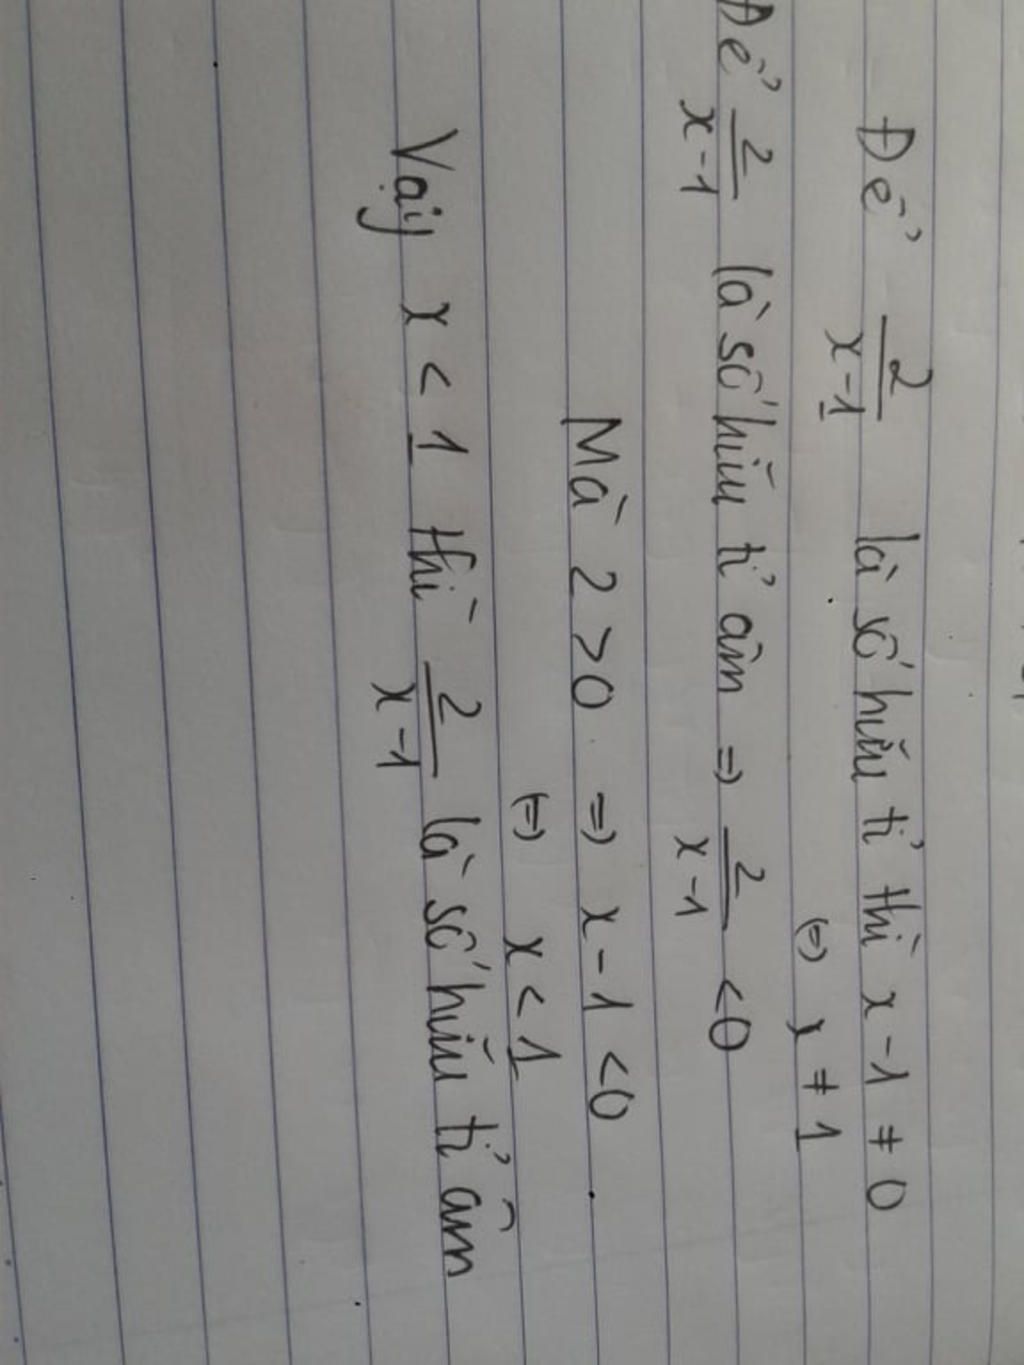 Để 2/x-1 là số hữu tỉ thì x-1 ≠ 0
(=) x ≠ 1
Để 2/x-1 là số hữu tỉ âm => 2/x-1 <0
Mà 2 >0 => x-1 <0
(=) x < 1
Vậy x < 1 thì 2/x-1 là số hữu tỉ âm